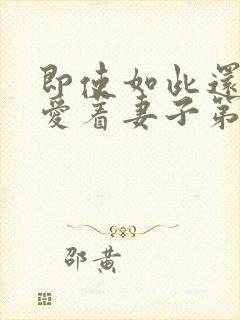 即使如此還
愛着妻子第
邵黄